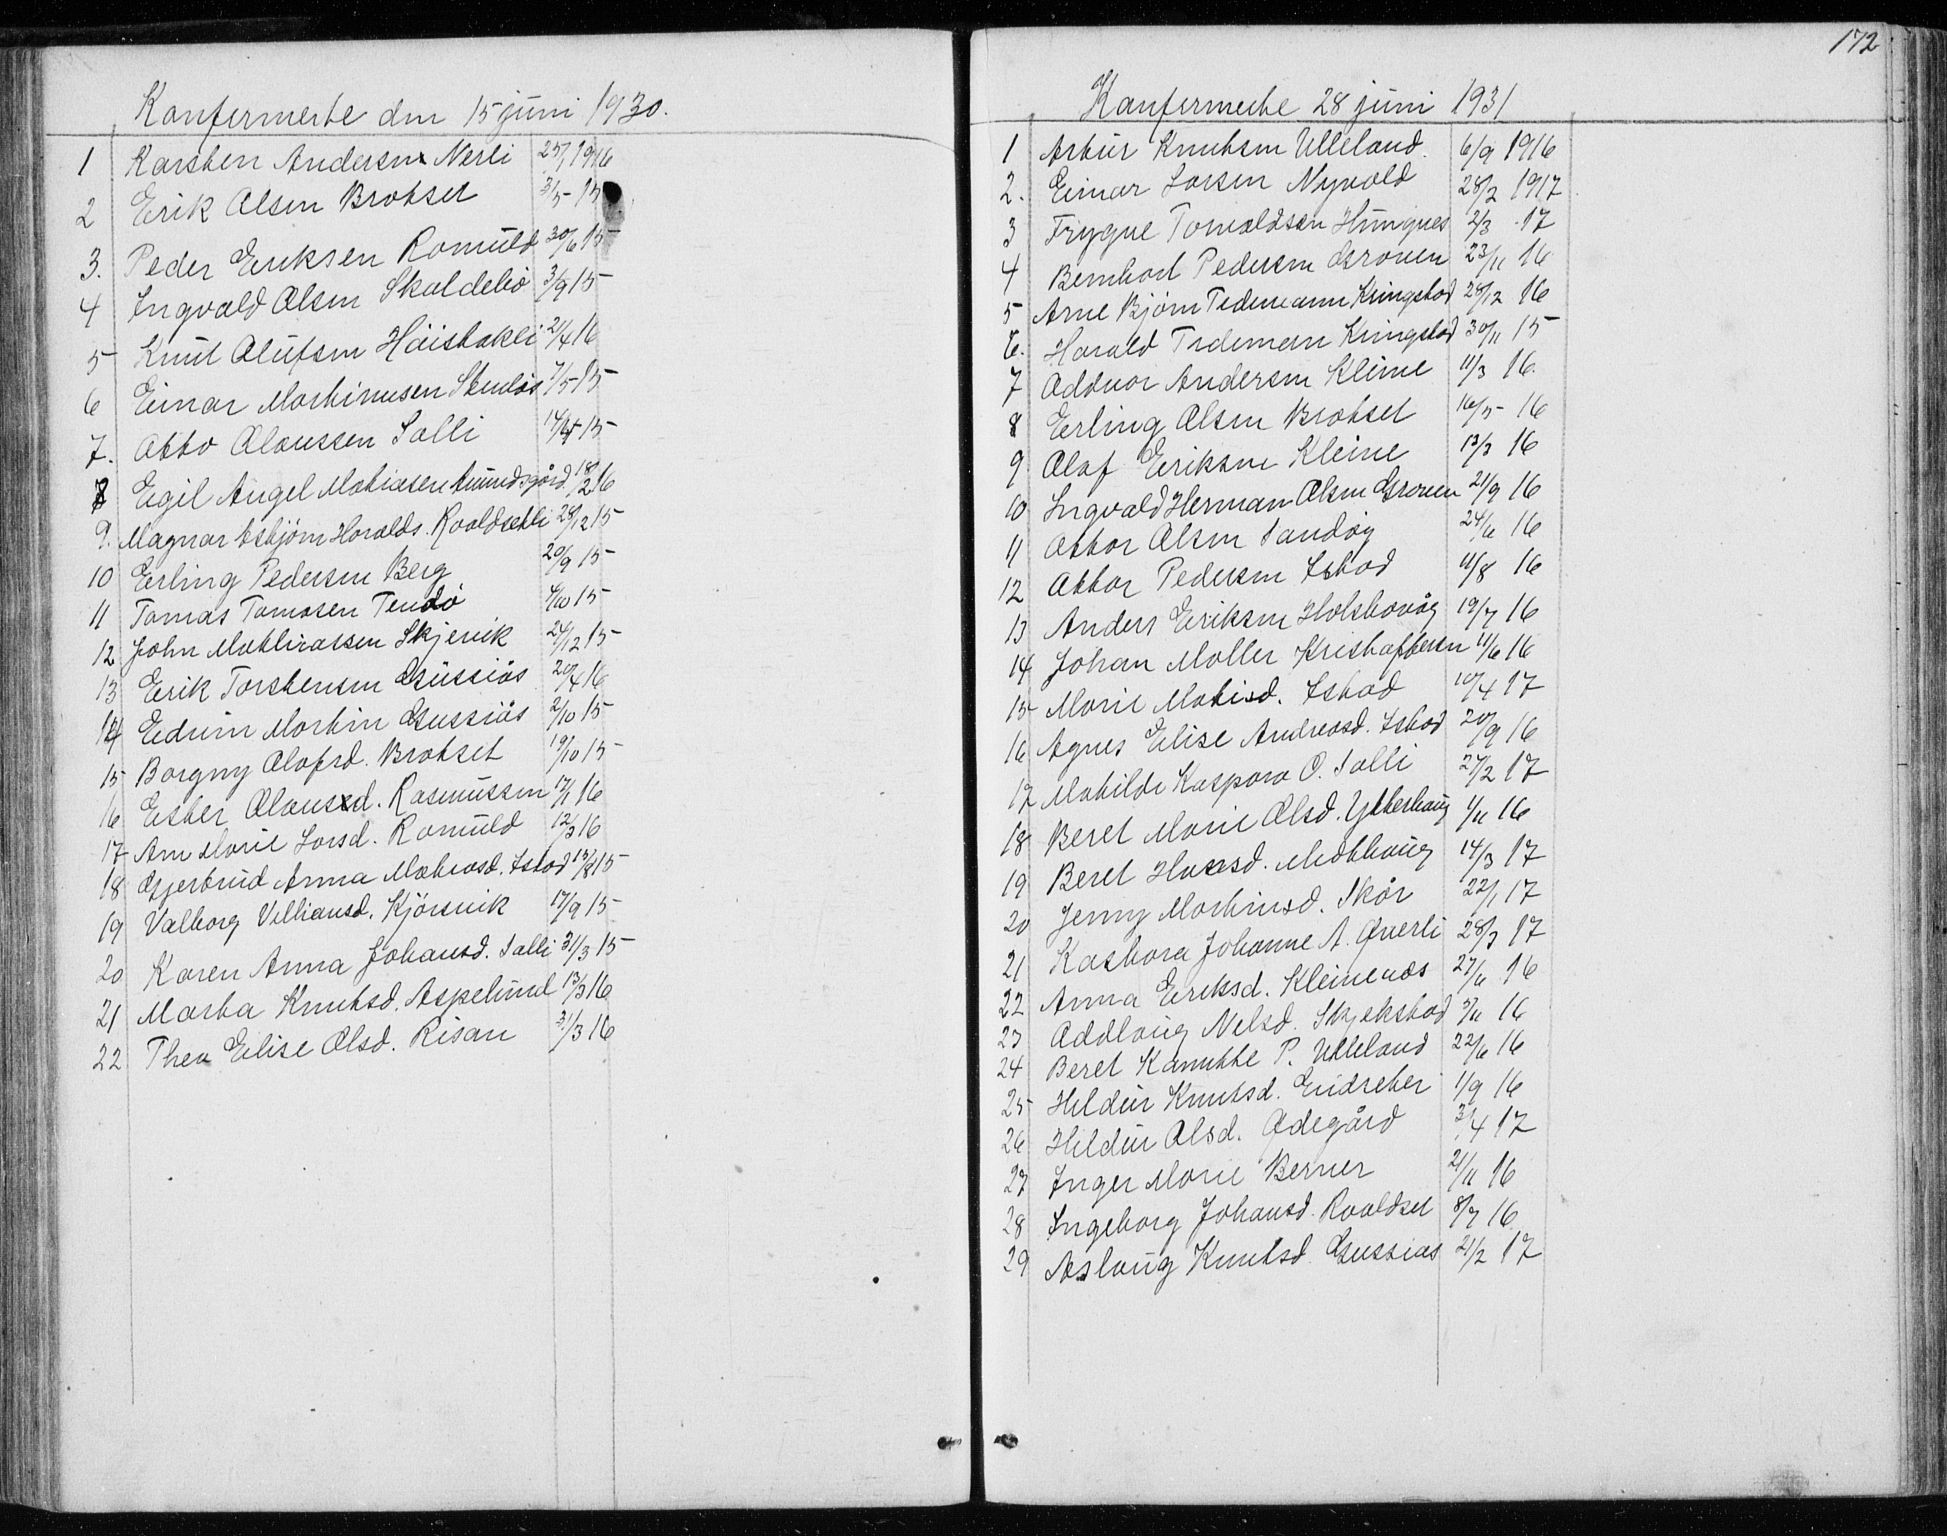 Konfermerte den 15 juni 1930.
1 Karsten Andersen Nerli 25/1 1916
2 Erik Olsen Brokset 3/5 15
3. Peder Eriksen Romuld 30/6 15
4 Ingvald Olsen Skaldebø 3/9 15
5 Knut Olufsen Høistakli 21/4 16
6 Einar Martinusen Stenløs 7/5 15
7. Otto Olaussen Salli 14/4 15
8 Egil Angel Matiasen Amundsgård 18/2 16
9. Magnar Asbjørn Haralds. Roaldsetli 28/12 15
10 Erling Pedersen Berg 20/9 15
11 Tomas Tomasen Tendø 4/10 15
12 John Mathiassen Skjervik 24/12 15
13 Erik Torstensen Gussiås 20/4 16
14 Edvin Martin Gussiås 2/10 15
15 Borgny Olafsd. Brokset 19/10 15
16 Ester Olausd. Rasmussen 17/1 16
17 Ane Marie Larsd. Romuld 12/3 16
18 Gjertrud Anna Mathiasd. Istad 13/8 15
19 Valborg Villiansd. Kjørsvik 17/9 15
20 Karen Anna Johansd. Salli 31/3 15
21 Marta Knutsd. Aspelund 13/3 16
22 Thea Elise Olsd. Risan 31/3 16
172
Konfermerte 28 juni 1931
1 Artur Knutsen Ulleland. 6/9 1916
2. Einar Larsen Nyvold 28/2 1917
3 Trygve Tomaldsen Hungnes 2/3 17
4 Bernhart Pedersen Groven 23/11 16
5 Arne Bjørn Tedemann Kringstad 28/12 16
6. Harald Tedeman Kringstad 30/11 15
7 Oddvar Andersen Kleive 11/3 16.
8 Erling Olsen Brokset 16/5 16
9 Olaf Eriksen Kleive 13/3 16
10 Ingvald Herman Olsen Groven 21/9 16
11 Ottar Olsen Sandøy 24/6 16
12 Ottar Pedersen Istad 11/8 16
13 Anders Eriksen Holstavåg 19/7 16
14 Johan Møller Kristoffersen 11/6 16
15 Marie Matisd. Istad 10/4 17
16 Agnes Elise Andreasd. Istad 20/9 16
17 Matilde Kaspara O. Salli 27/2 17
18 Beret Marie Olsd. Ytterhaug 1/11 16
19 Beret Hansd. Midthaug 14/3 17
20 Jenny Martinsd. Skår 22/1 17
21 Kastora Johanne A. Øverli 28/3 17
22 Anna Eriksd. Kleivenæs 27/6 16
23 Oddlaug Nilsd. Skjekstad 5/11 16
24 Beret Kanutte P. Ulleland 22/6 16
25 Hildur Knutsd. Eidseter 1/9 16
26 Hildur Olsd. Ødegård 3/4 17
27 Inger Marie Berner 21/11 16
28 Ingeborg Johansd. Roaldset 8/7 16
29 Aslaug Knutsd. Gussias 21/2 17